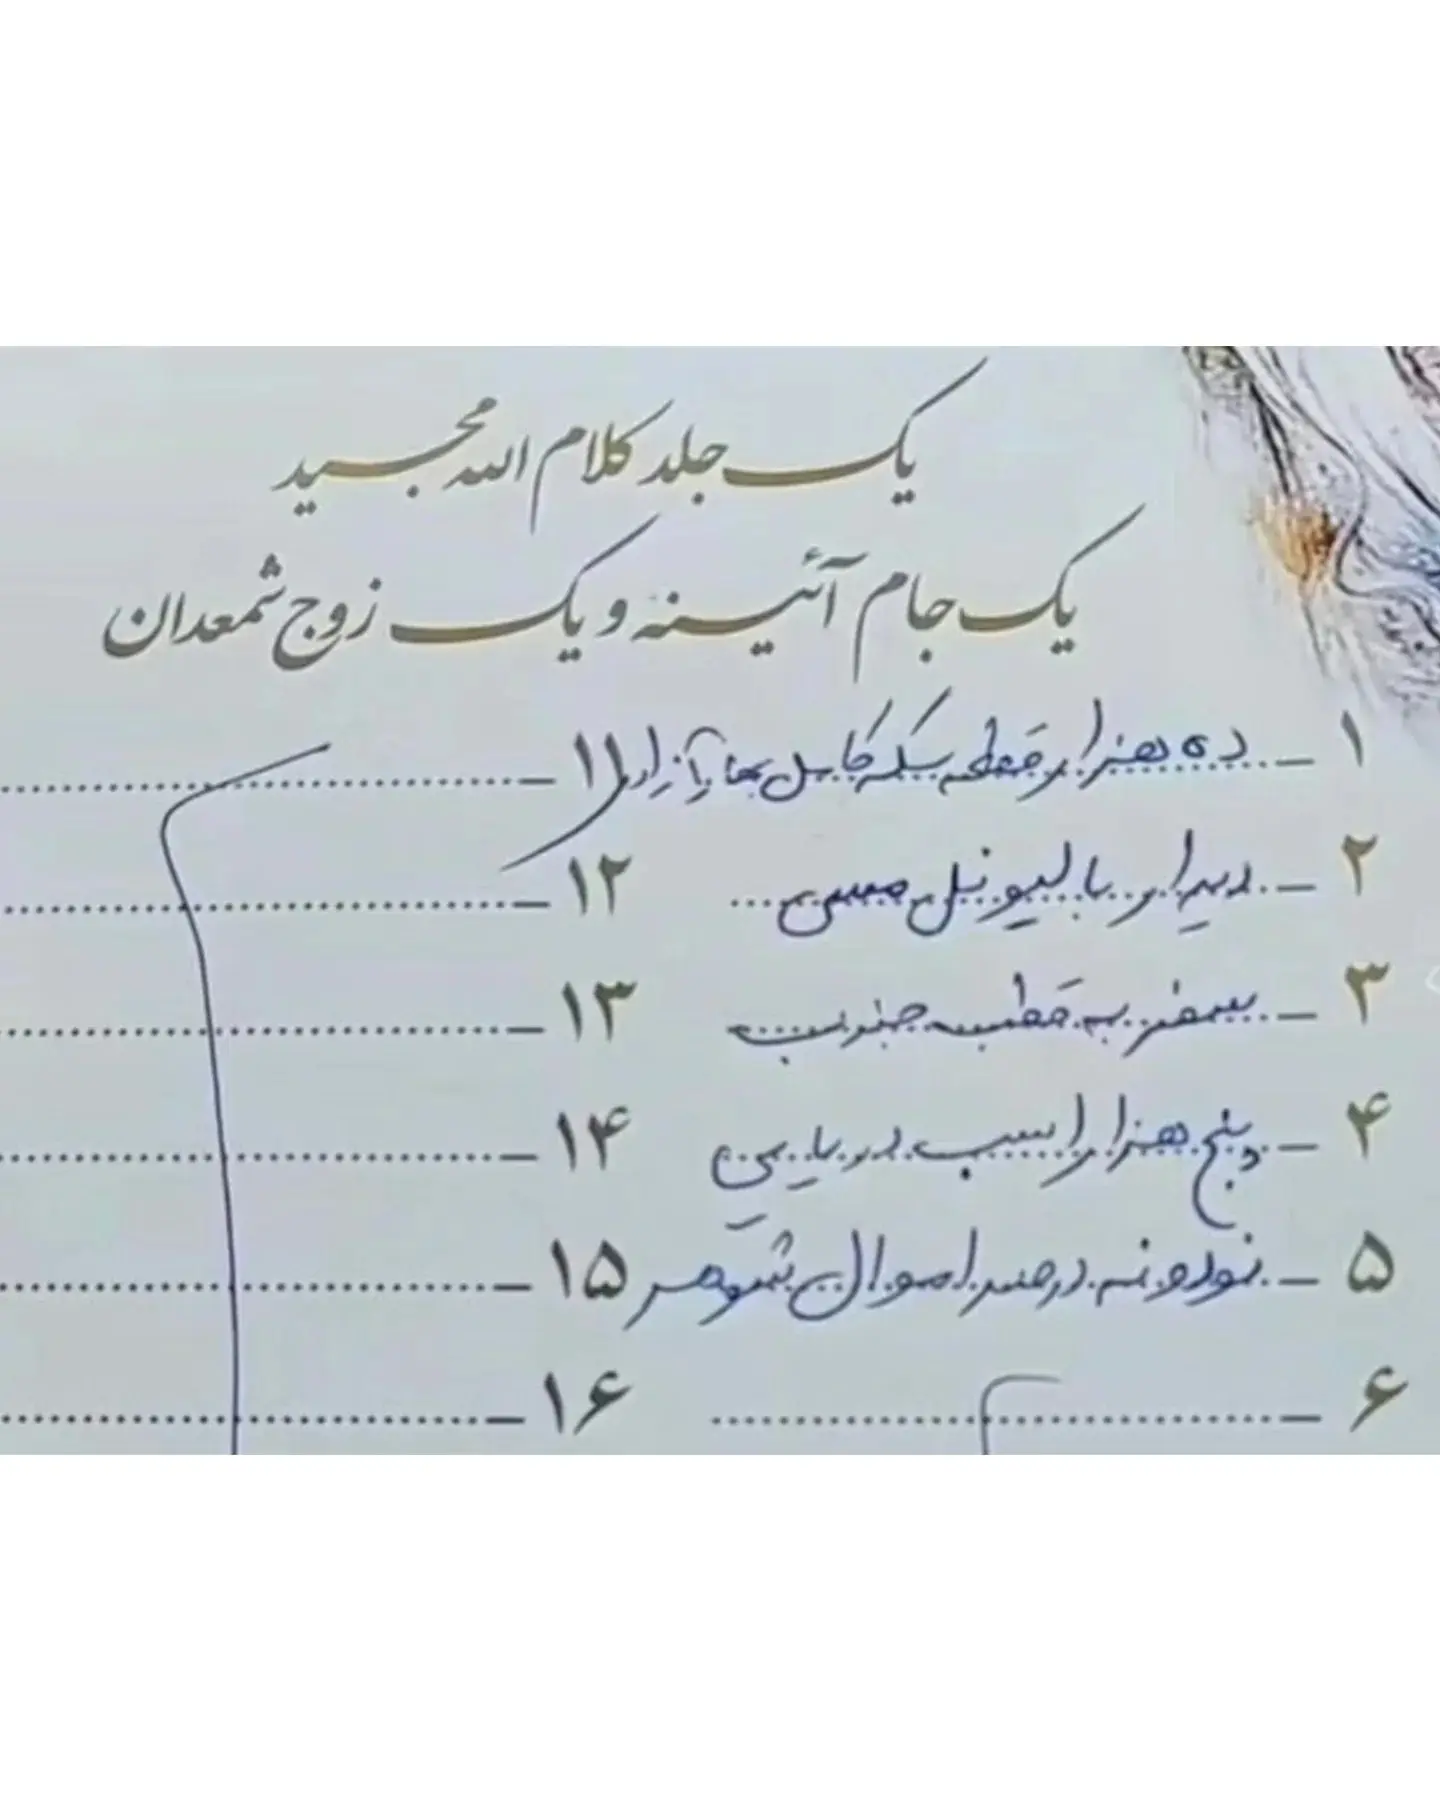 یک جلد کلام الله مجید
یک جام آئینه و یک زوج شمعدان
۱ ـ ده هزار قطعه سکه کامل بهار آزادی
۲ ـ دیدار با لیونل مسی
۳ ـ سفر به قطب جنوب
۴ ـ پنج هزار اسب دریایی
۵ ـ نود و نه درصد اموال شوهر
۶ ـ
۱۱ ـ
۱۲ ـ
۱۳ ـ
۱۴ ـ
۱۵ ـ
۱۶ ـ